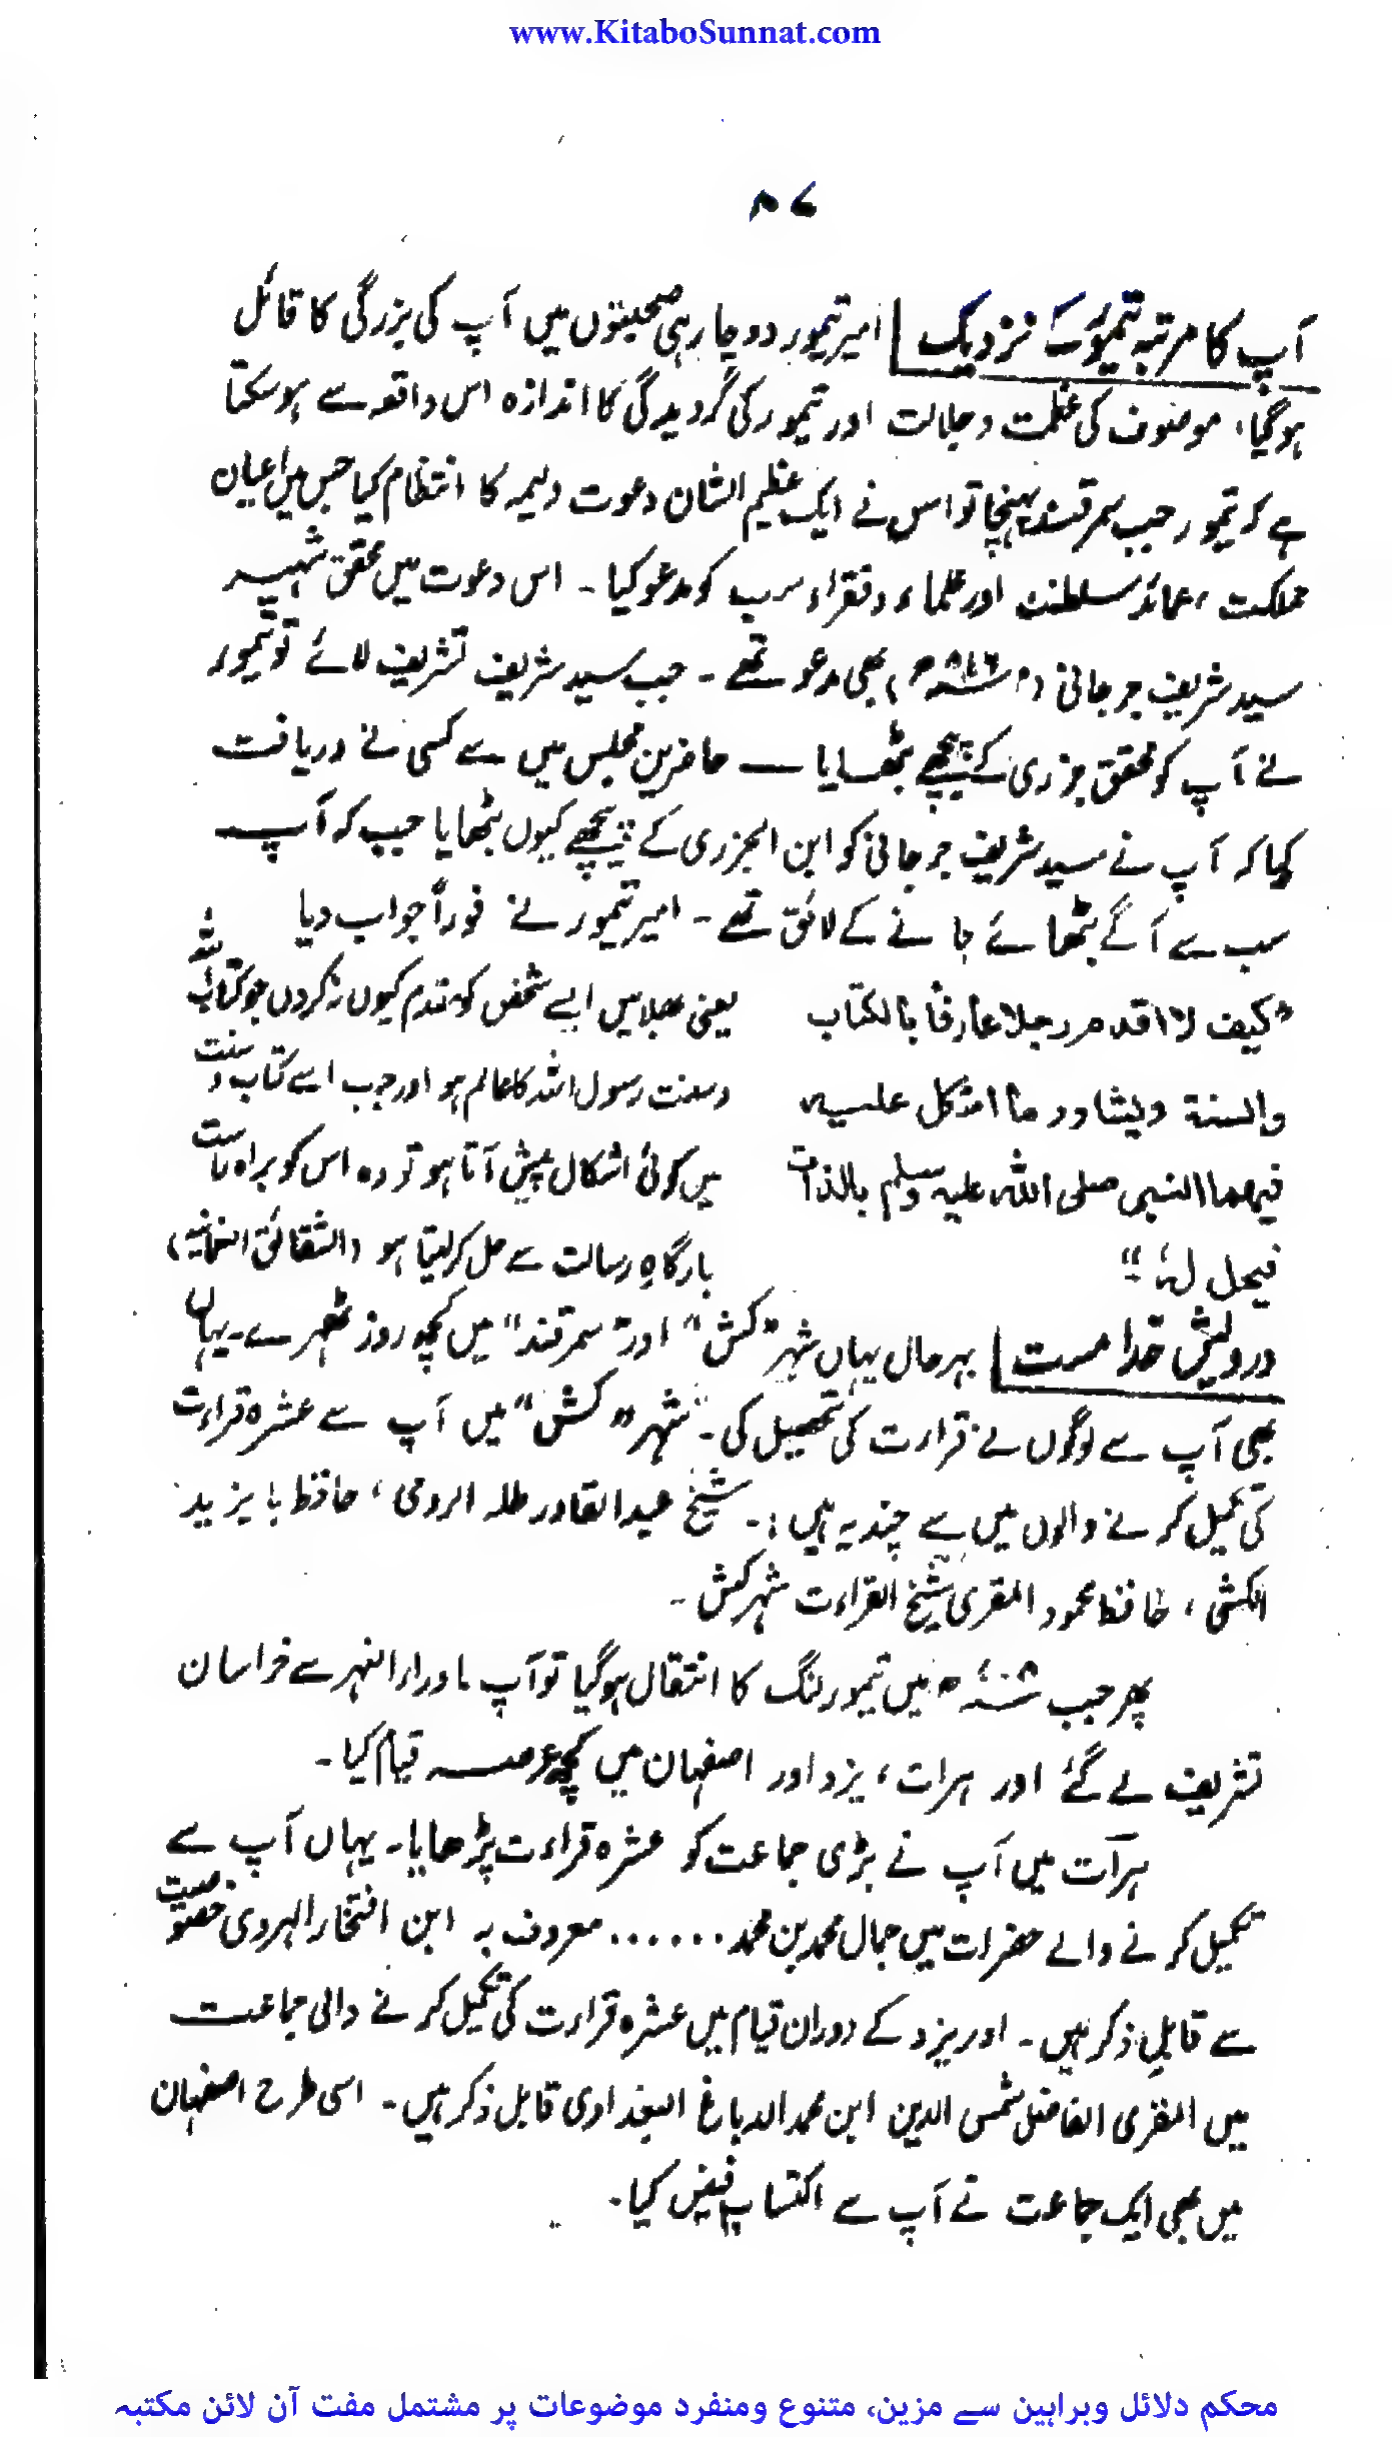 www.KitaboSunnat.com
۸۷
آپ کا مرتبہ تیمور کے نزدیک | امیر تیمور دو چار ہی صحبتوں میں آپ کی بزرگی کا قائل
ہوگیا، موصوف کی عظمت و جلالت اور تیمور کی گردیدگی کا اندازہ اس واقعہ سے ہوسکتا
ہے کہ تیمور جب سمرقند پہنچا تو اس نے ایک عظیم الشان دعوت ولیمہ کا انتظام کیا جس میں اعیان
مملکت، عمائد سلطنت اور علماء وفقراء سب کو مدعو کیا ۔ اس دعوت میں محقق شہیر
سید شریف جرجانی (م ۸۱۶ھ) بھی مدعو تھے ۔ جب سید شریف تشریف لائے تو تیمور
نے آپ کو محقق جزری کے پیچھے بٹھایا — حاضرین مجلس میں سے کسی نے دریافت
کیا کہ آپ نے سید شریف جرجانی کو ابن الجزری کے پیچھے کیوں بٹھایا جب کہ آپ
سب سے آگے بٹھائے جانے کے لائق تھے ۔ امیر تیمور نے فوراً جواب دیا
"کیف لا اقدم رجلا عارفا بالکتاب
والسنة ویشاور ما اشکل علیہ
فیهما النبی صلی الله علیہ وسلم بالذات
فیحل لہ؛"
یعنی بھلا میں ایسے شخص کو مقدم کیوں نہ کردوں جو کتاب اللہ
وسنت رسول اللہ کا عالم ہو اور جب اسے کتاب و سنت
میں کوئی اشکال پیش آتا ہو تو وہ اس کو براہ راست
بارگاہِ رسالت سے حل کرلیتا ہو (الشقائق النعمانیہ)
درویش خدا مست | بہرحال یہاں شہر "کش" اور "سمرقند" میں کچھ روز ٹھہرے۔ یہاں
بھی آپ سے لوگوں نے قرارت کی تحصیل کی۔ شہر "کش" میں آپ سے عشرہ قراءت
کی تکمیل کرنے والوں میں سے چند یہ ہیں :۔ شیخ عبدالقادر طلہ الرومی، حافظ بایزید
الکشی، حافظ محمود المقری شیخ القراءت شہر کش ۔
پھر جب ۸۰۷ھ میں تیمور لنگ کا انتقال ہوگیا تو آپ ماوراء النہر سے خراسان
تشریف لے گئے اور ہرات، یزد اور اصفہان میں کچھ عرصہ قیام کیا ۔
ہرات میں آپ نے بڑی جماعت کو عشرہ قراءت پڑھایا۔ یہاں آپ سے
تکمیل کرنے والے حضرات میں جمال محمد بن محمد ...... معروف بہ ابن افتخار الہروی خصوصیت
سے قابلِ ذکر ہیں۔ اور یزد کے دوران قیام میں عشرہ قرارت کی تکمیل کرنے والی جماعت
میں المقری الفاضل شمس الدین ابن محمد الدباغ البغدادی قابل ذکر ہیں۔ اسی طرح اصفہان
میں بھی ایک جماعت نے آپ سے اکتساب فیض کیا۔
محکم دلائل وبراہین سے مزین، متنوع ومنفرد موضوعات پر مشتمل مفت آن لائن مکتبہ